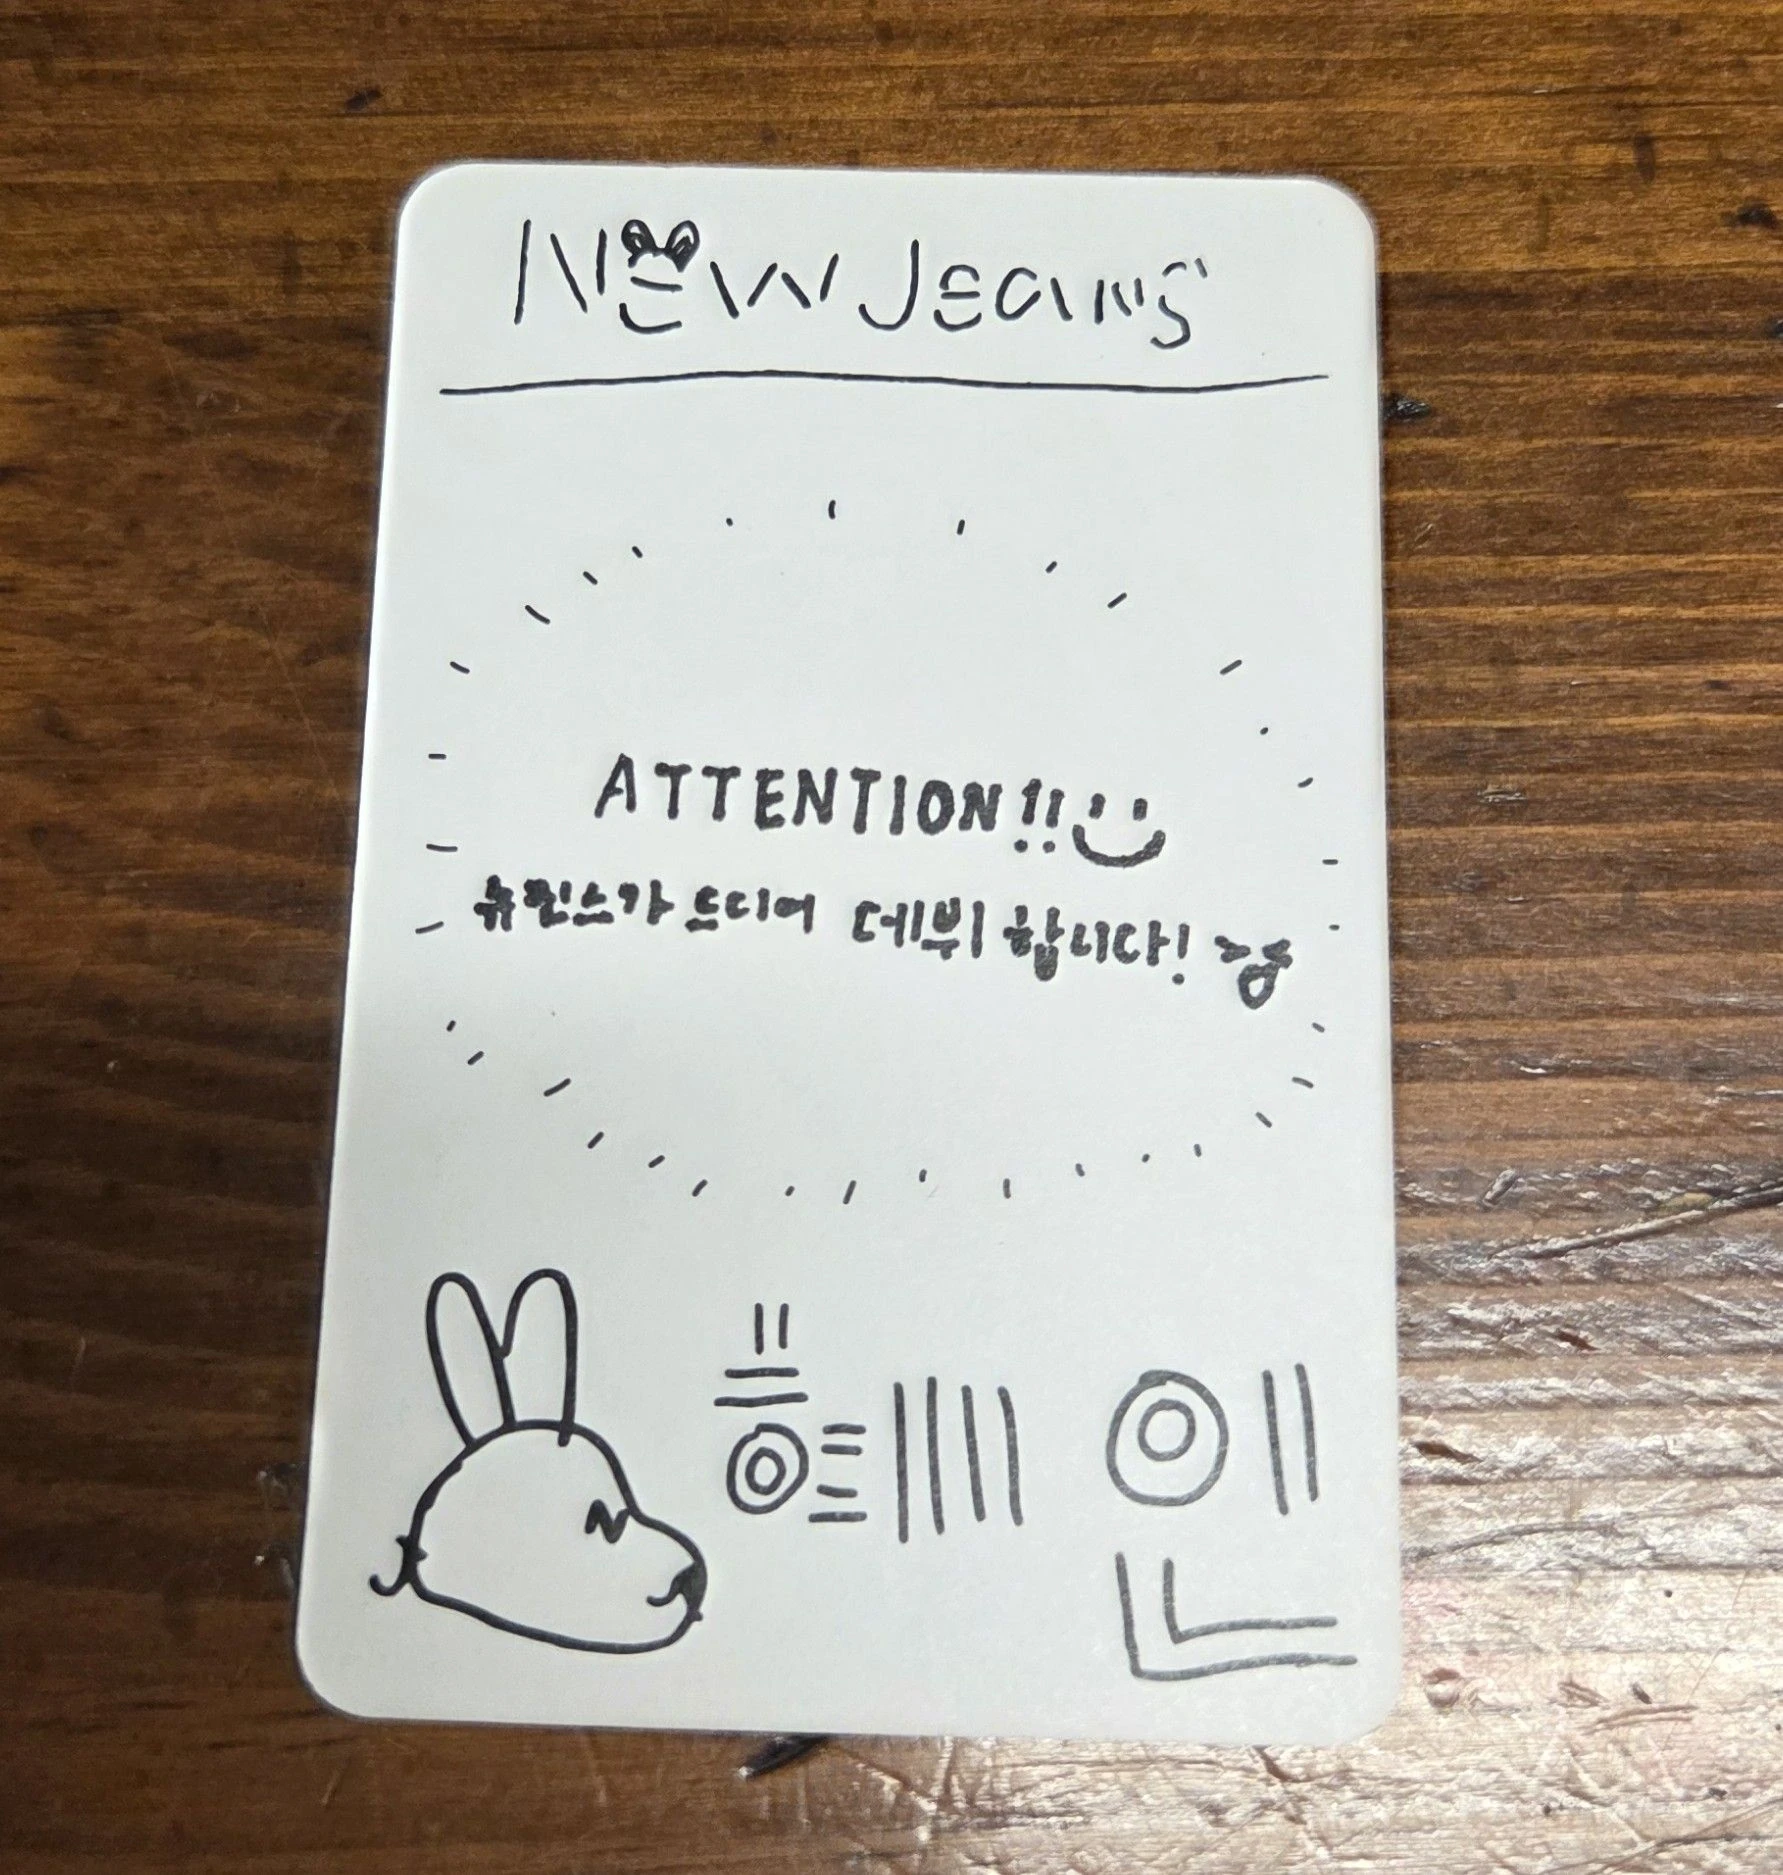 NewJeans
ATTENTION!!
뉴진스가 드디어 데뷔 합니다!
혜인